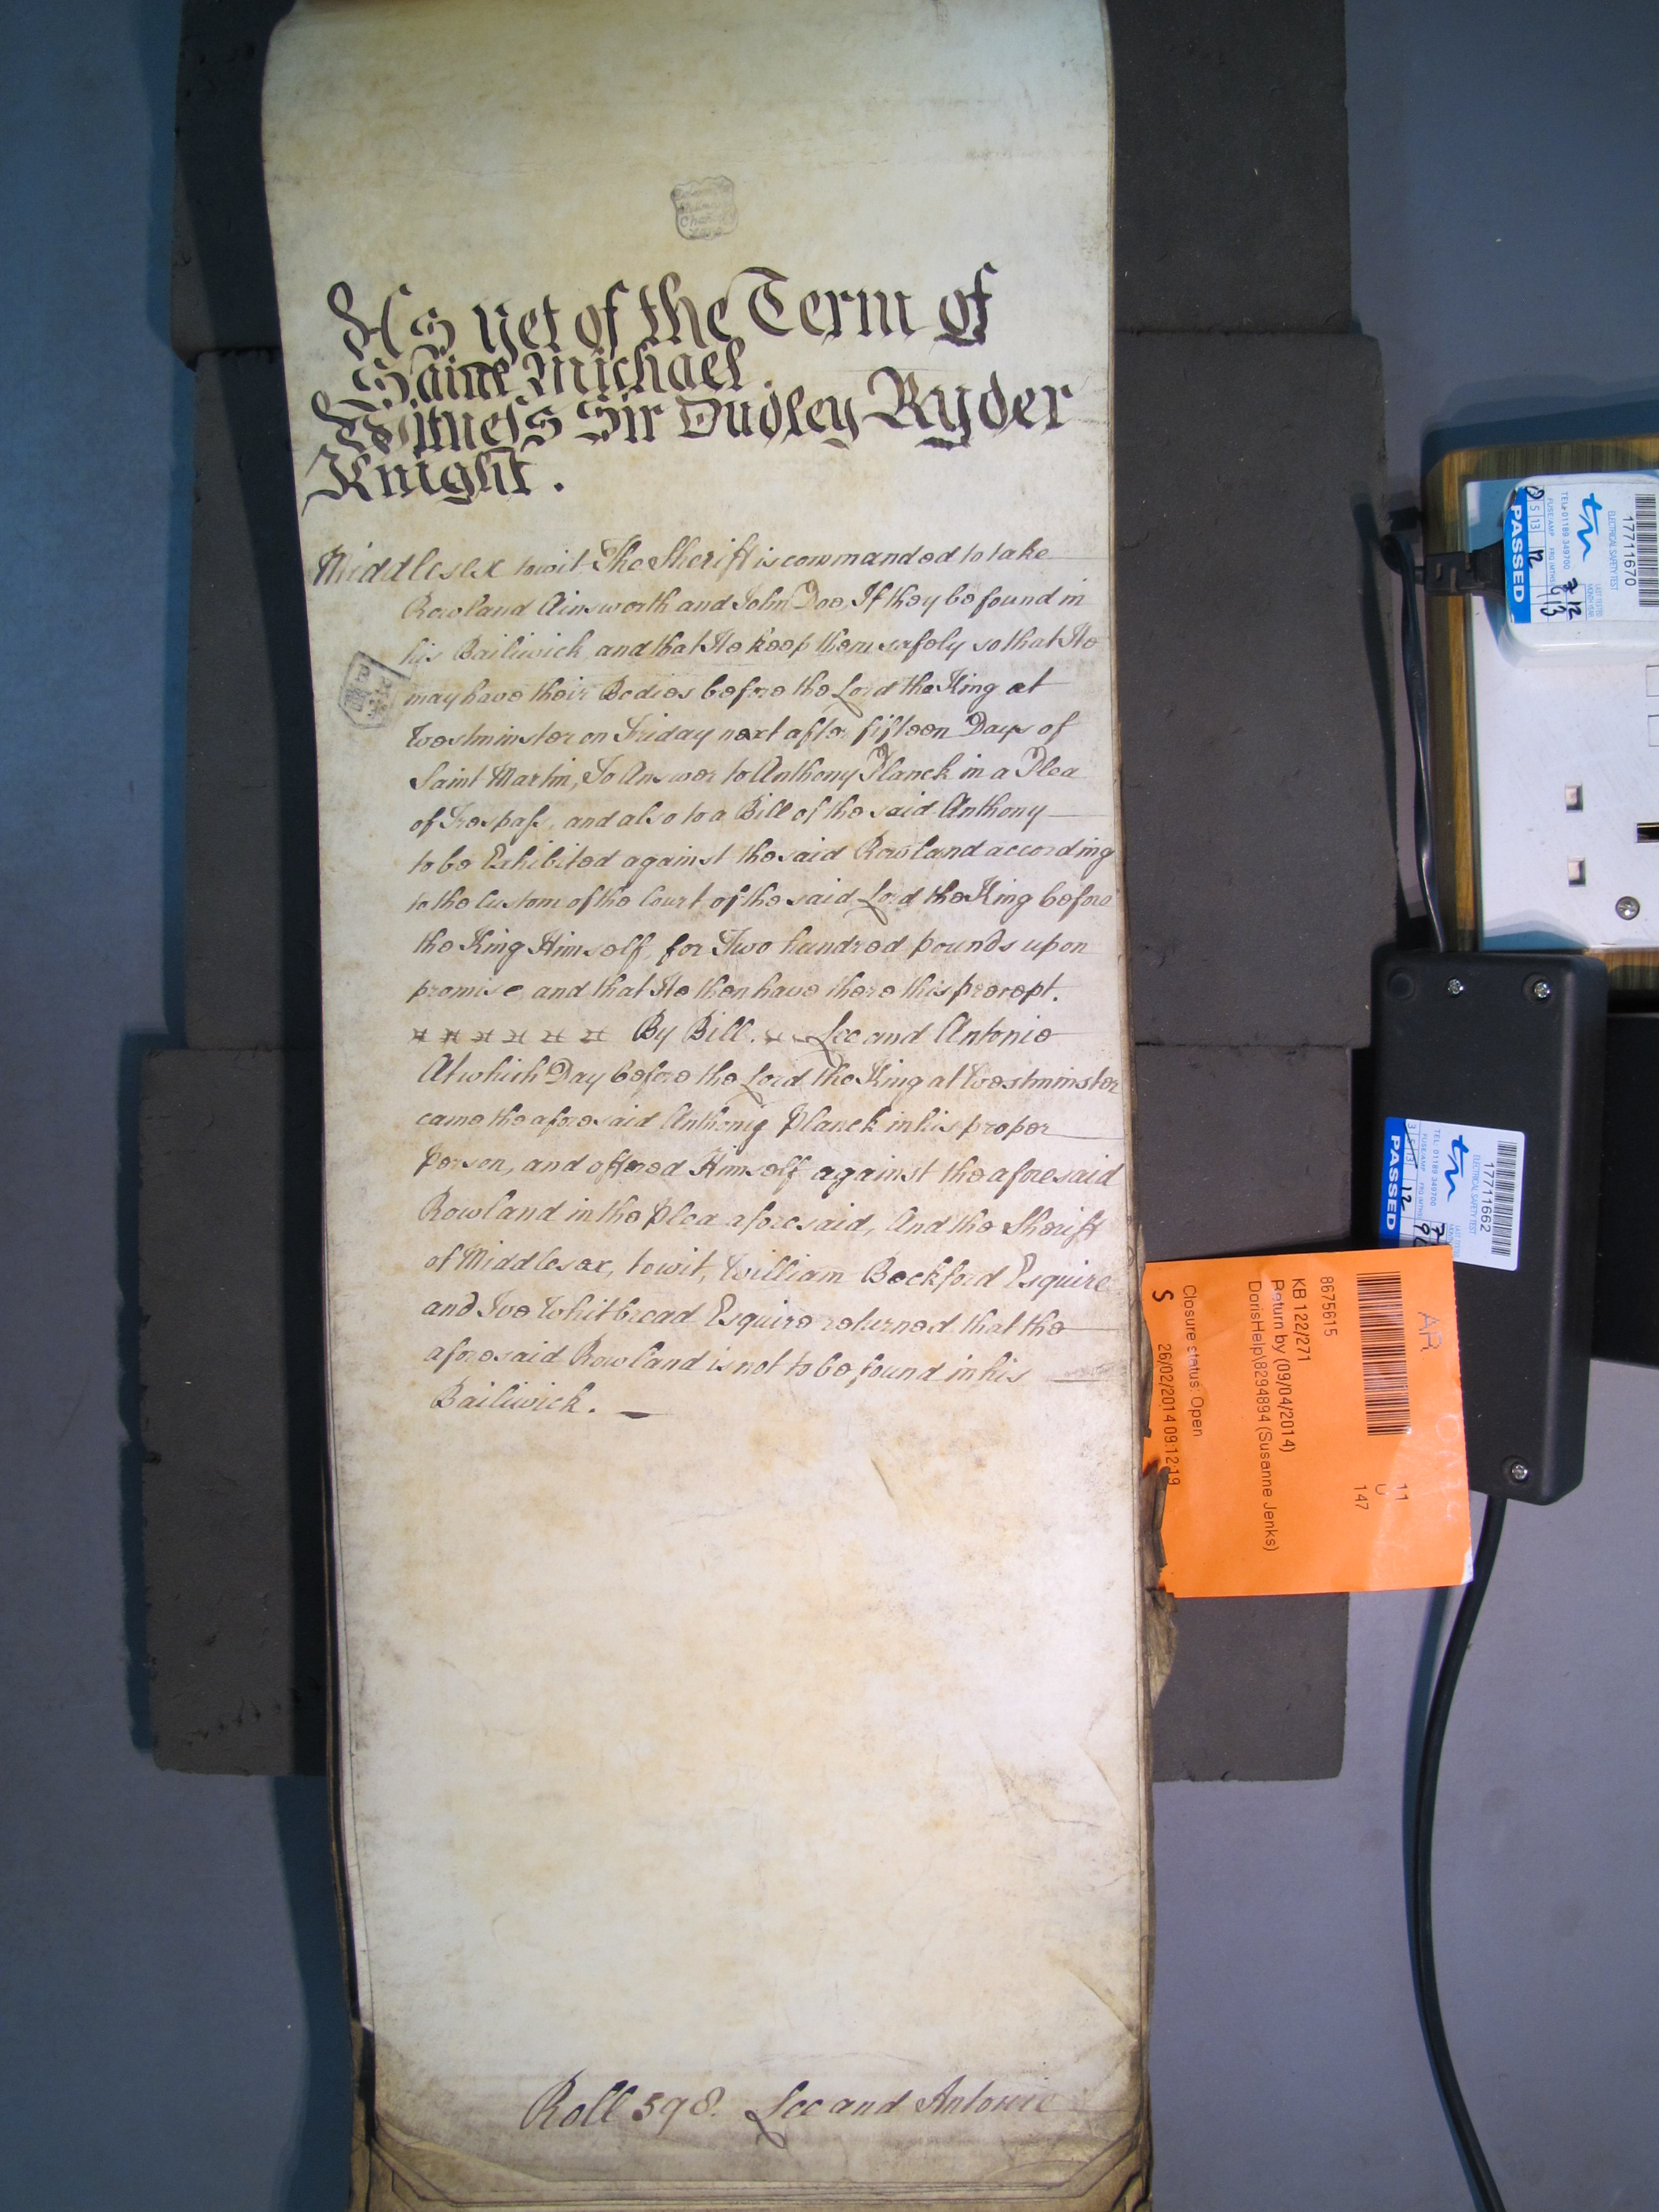 As yet of the Term of
Saint Michael.
Witness Sir Dudley Ryder
Knight.
Middlesex towit The Sheriff is commanded to take
Rowland Ainsworth and John Doe If they be found in
his Bailiwick and that He keep them safely so that He
may have their Bodies before the Lord the King at
Westminster on Friday next after fifteen Days of
Saint Martin, To Answer to Anthony Planck in a Plea
of Trespass, and also to a Bill of the said Anthony
to be Exhibited against the said Rowland according
to the Custom of the Court of the said Lord the King before
the King Himself, for Two hundred pounds upon
promise, and that He then have there this precept.
By Bill. Lee and Antonie
At which Day before the Lord the King at Westminster
came the aforesaid Anthony Planck in his proper
person, and offered Himself against the aforesaid
Rowland in the plea aforesaid, And the Sheriff
of Middlesex, towit, William Beckford Esquire
and Ive Whitbread Esquire returned that the
aforesaid Rowland is not to be found in his
Bailiwick.
Roll 598. Lee and Antonie
17711670
ELECTRICAL SAFETY TEST
TEL: 01189 349700
PASSED
17711662
ELECTRICAL SAFETY TEST
TEL: 01189 349700
PASSED
AR
11
U
147
8675615
KB 122/271
Return by (09/04/2014)
DorisHelp\8294894 (Susanne Jenks)
Closure status: Open
S 26/02/2014 09:12:19